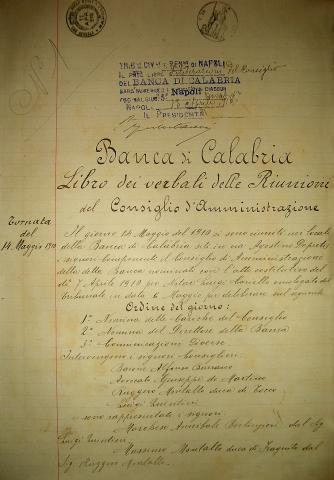 N° 1
TRIB. CIV. E PEN. DI NAPOLI
IL PRES. LIBRO Deliberazioni del Consiglio
DEL BANCA DI CALABRIA
Napoli
NAPOLI
IL PRESIDENTE
Banca di Calabria
Libro dei verbali delle Riunioni
del Consiglio d'Amministrazione
Tornata
del
14 Maggio 1910
Il giorno 14 Maggio del 1910 si sono riuniti nei locali
della Banca di Calabria siti in via Agostino Depretis,
i signori componenti il Consiglio di Amministrazione
della detta Banca nominati con l'atto costitutivo del
dì 7 Aprile 1910 per Notar Luigi omologato dal
tribunale in data 6 Maggio per deliberare sul seguente
Ordine del giorno:
1° Nomina delle cariche del Consiglio
2° Nomina del Direttore della Banca
3° Comunicazioni Diverse.
Intervengono i signori Consiglieri
Barone Alfonso Barracco
Avvocato Giuseppe de Martino
Ruggero Montalto duca di
Luigi Quintieri
sono rappresentati i signori
Marchese Annibale Berlingieri dal Sig.
Luigi Quintieri
Massimo Montalto duca di Fragnito dal
Sig. Ruggero Montalto.